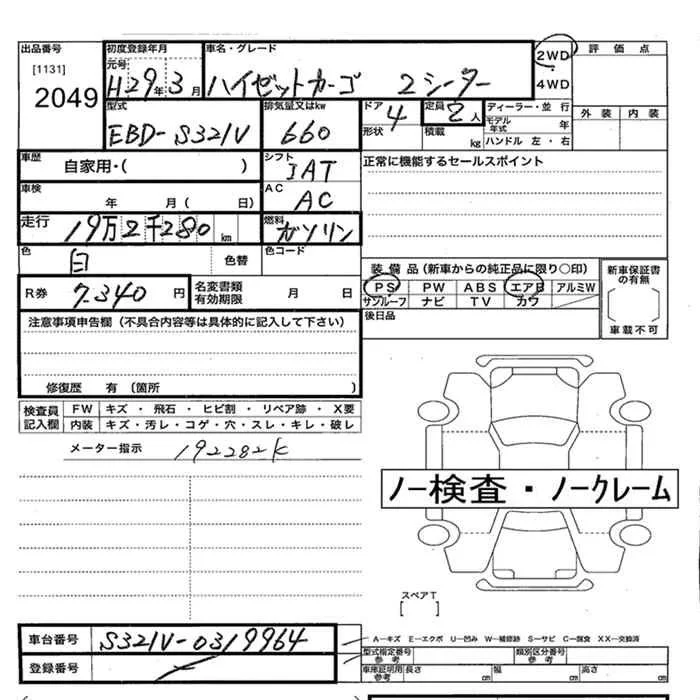 出品番号 初度登録年月 車名・グレード 2WD 評価点
[1131] 元号
2049 H29年3月 ハイゼットカーゴ 2シーター 4WD
型式 排気量又はkw ドア 4 定員 2人 ディーラー・並行 外装 内装
EBD-S321V 660 形状 積載 kg モデル年式 年
ハンドル 左・右
車歴 自家用・( ) シフト IAT 正常に機能するセールスポイント
車検 年 月( 日) AC AC
走行 19万2千280km 燃料 ガソリン
色 白 色替 色コード
装備品(新車からの純正品に限り○印) 新車保証書の有無
R券 7.340円 名変書類有効期限 月 日 PS PW ABS エアB アルミW
サンルーフ ナビ TV カワ
注意事項申告欄(不具合内容等は具体的に記入して下さい) 後日品 車載不可
修復歴 有(箇所 )
検査員記入欄 FW キズ・飛石・ヒビ割・リペア跡・X要
内装 キズ・汚レ・コゲ・穴・スレ・キレ・破レ
メーター指示 192282K
ノー検査・ノークレーム
スペアT
[ ]
車台番号 S321V-0319964 A-キズ E-エクボ U-凹み W-補修跡 S-サビ C-腐食 XX-交換済
登録番号 型式指定番号 参考 類別区分番号 参考
車庫証明用参考 長さ cm 幅 cm 高さ cm